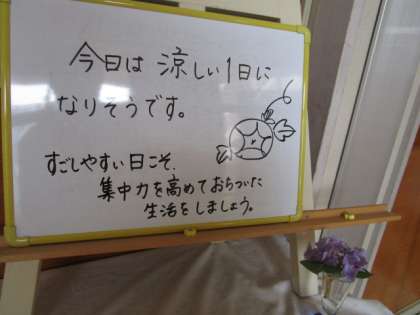 今日は 涼しい1日に
なりそうです。
すごしやすい日こそ、
集中力を高めておちついた
生活をしましょう。